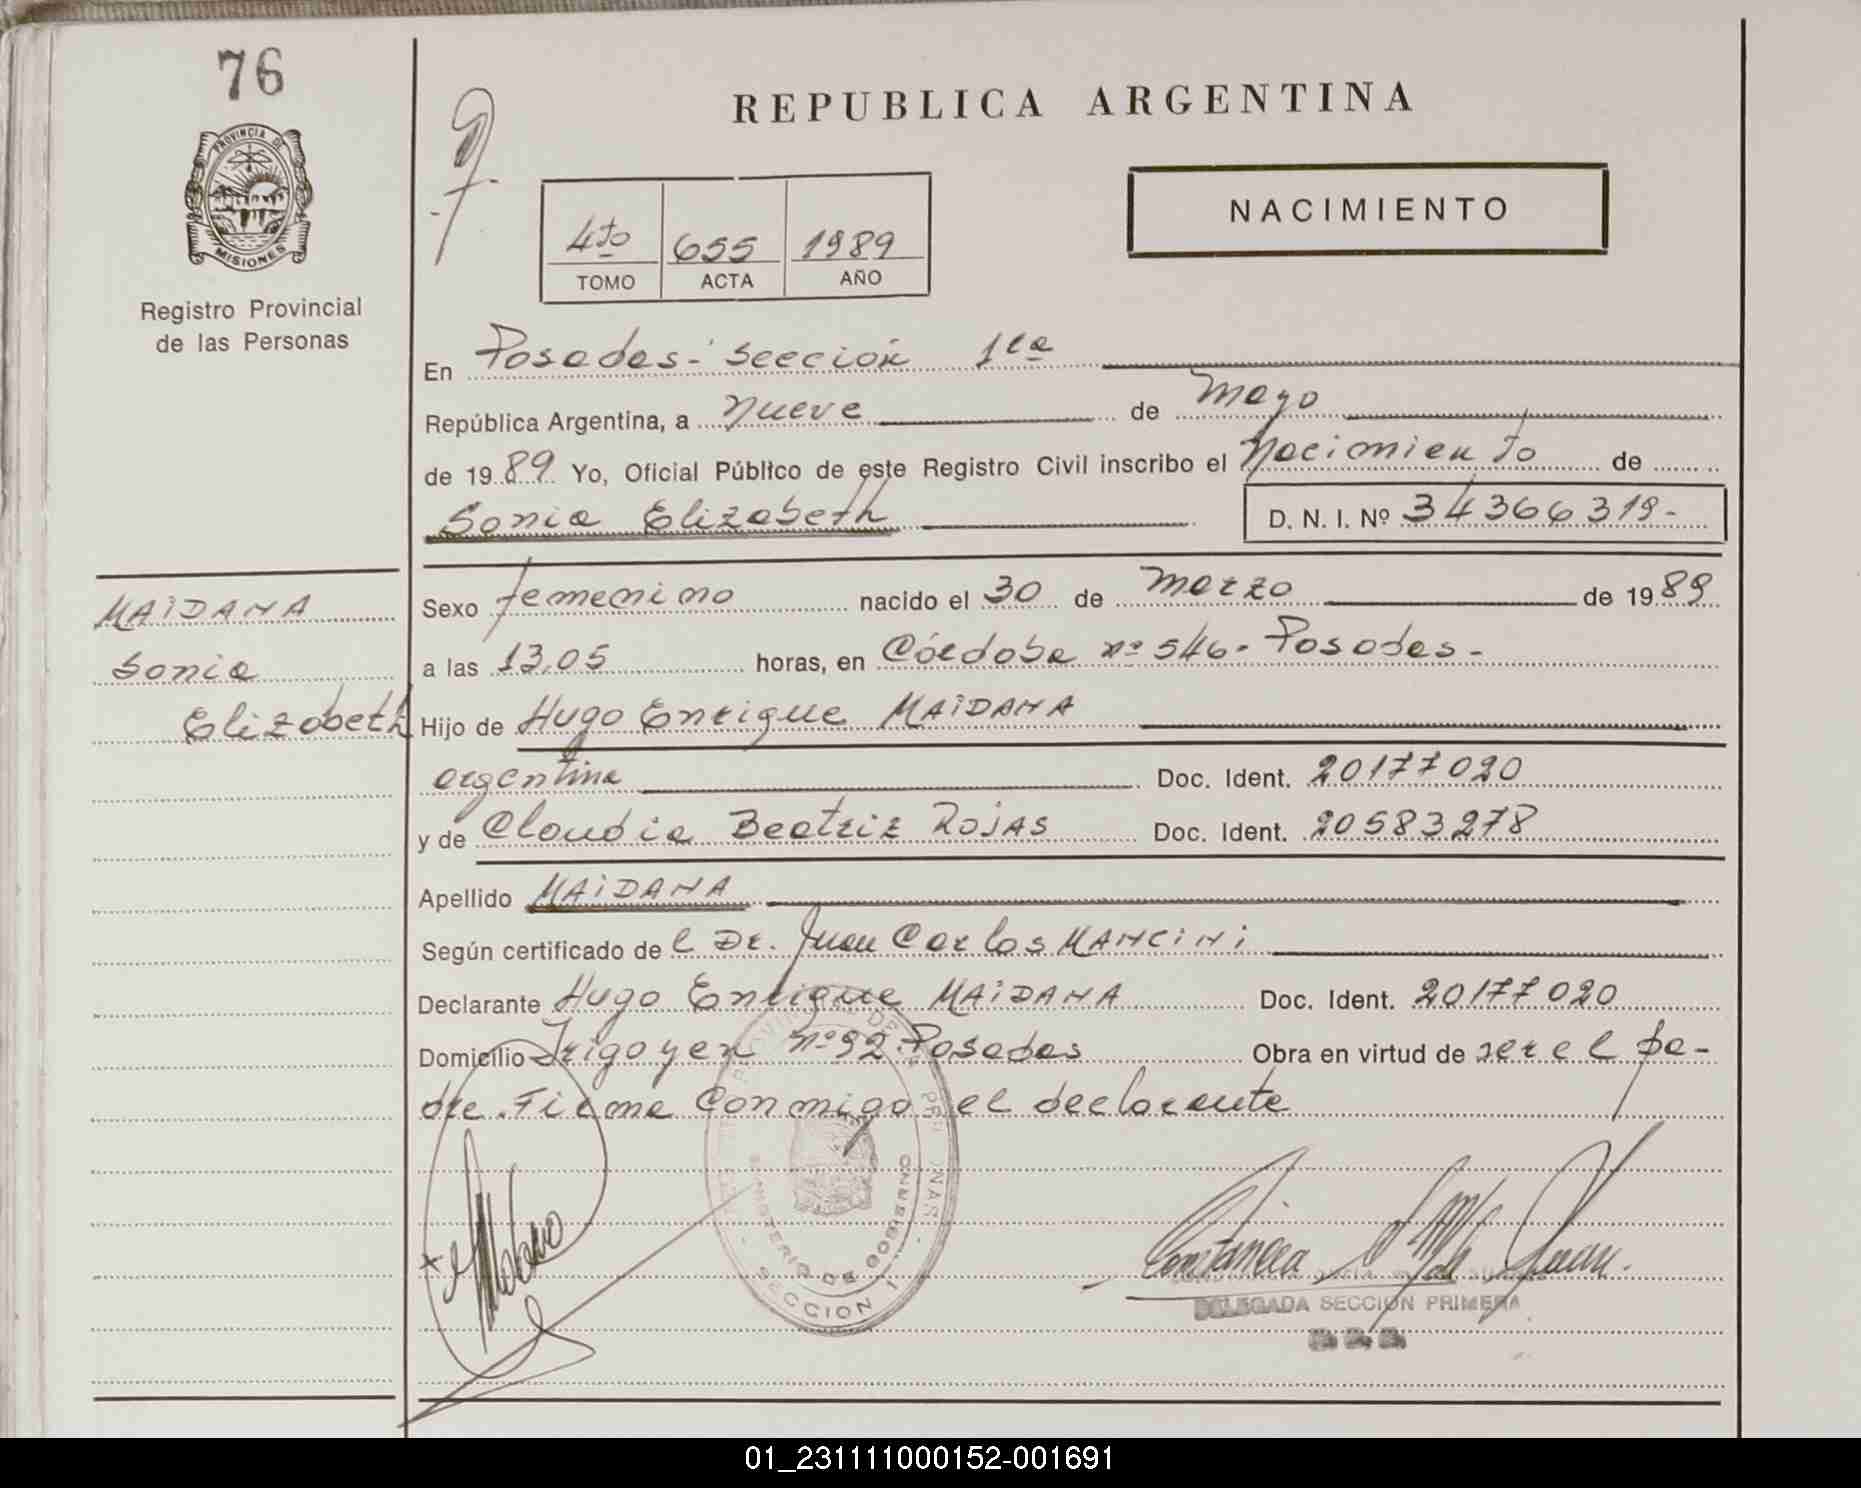 76
PROVINCIA DE
MISIONES
Registro Provincial
de las Personas
REPUBLICA ARGENTINA
NACIMIENTO
4to 655 1989
TOMO ACTA AÑO
En Posadas - Sección 1ra
República Argentina, a nueve de Mayo
de 1989 Yo, Oficial Público de este Registro Civil inscribo el Nacimiento de
Sonia Elizabeth D. N. I. Nº 34366319-
MAIDANA
Sonia
Elizabeth
Sexo femenino nacido el 30 de Marzo de 1989
a las 13,05 horas, en Córdoba nº 546 - Posadas -
Hijo de Hugo Enrique MAIDANA
argentina Doc. Ident. 20177020
y de Claudia Beatriz ROJAS Doc. Ident. 20583278
Apellido MAIDANA
Según certificado de l Dr. Juan Carlos MANCINI
Declarante Hugo Enrique MAIDANA Doc. Ident. 20177020
Domicilio Irigoyen nº 92 - Posadas Obra en virtud de ser el pa-
dre. Firma conmigo el declarante
MINISTERIO DE GOBIERNO
SECCION 1
DELEGADA SECCION PRIMERA
01_231111000152-001691